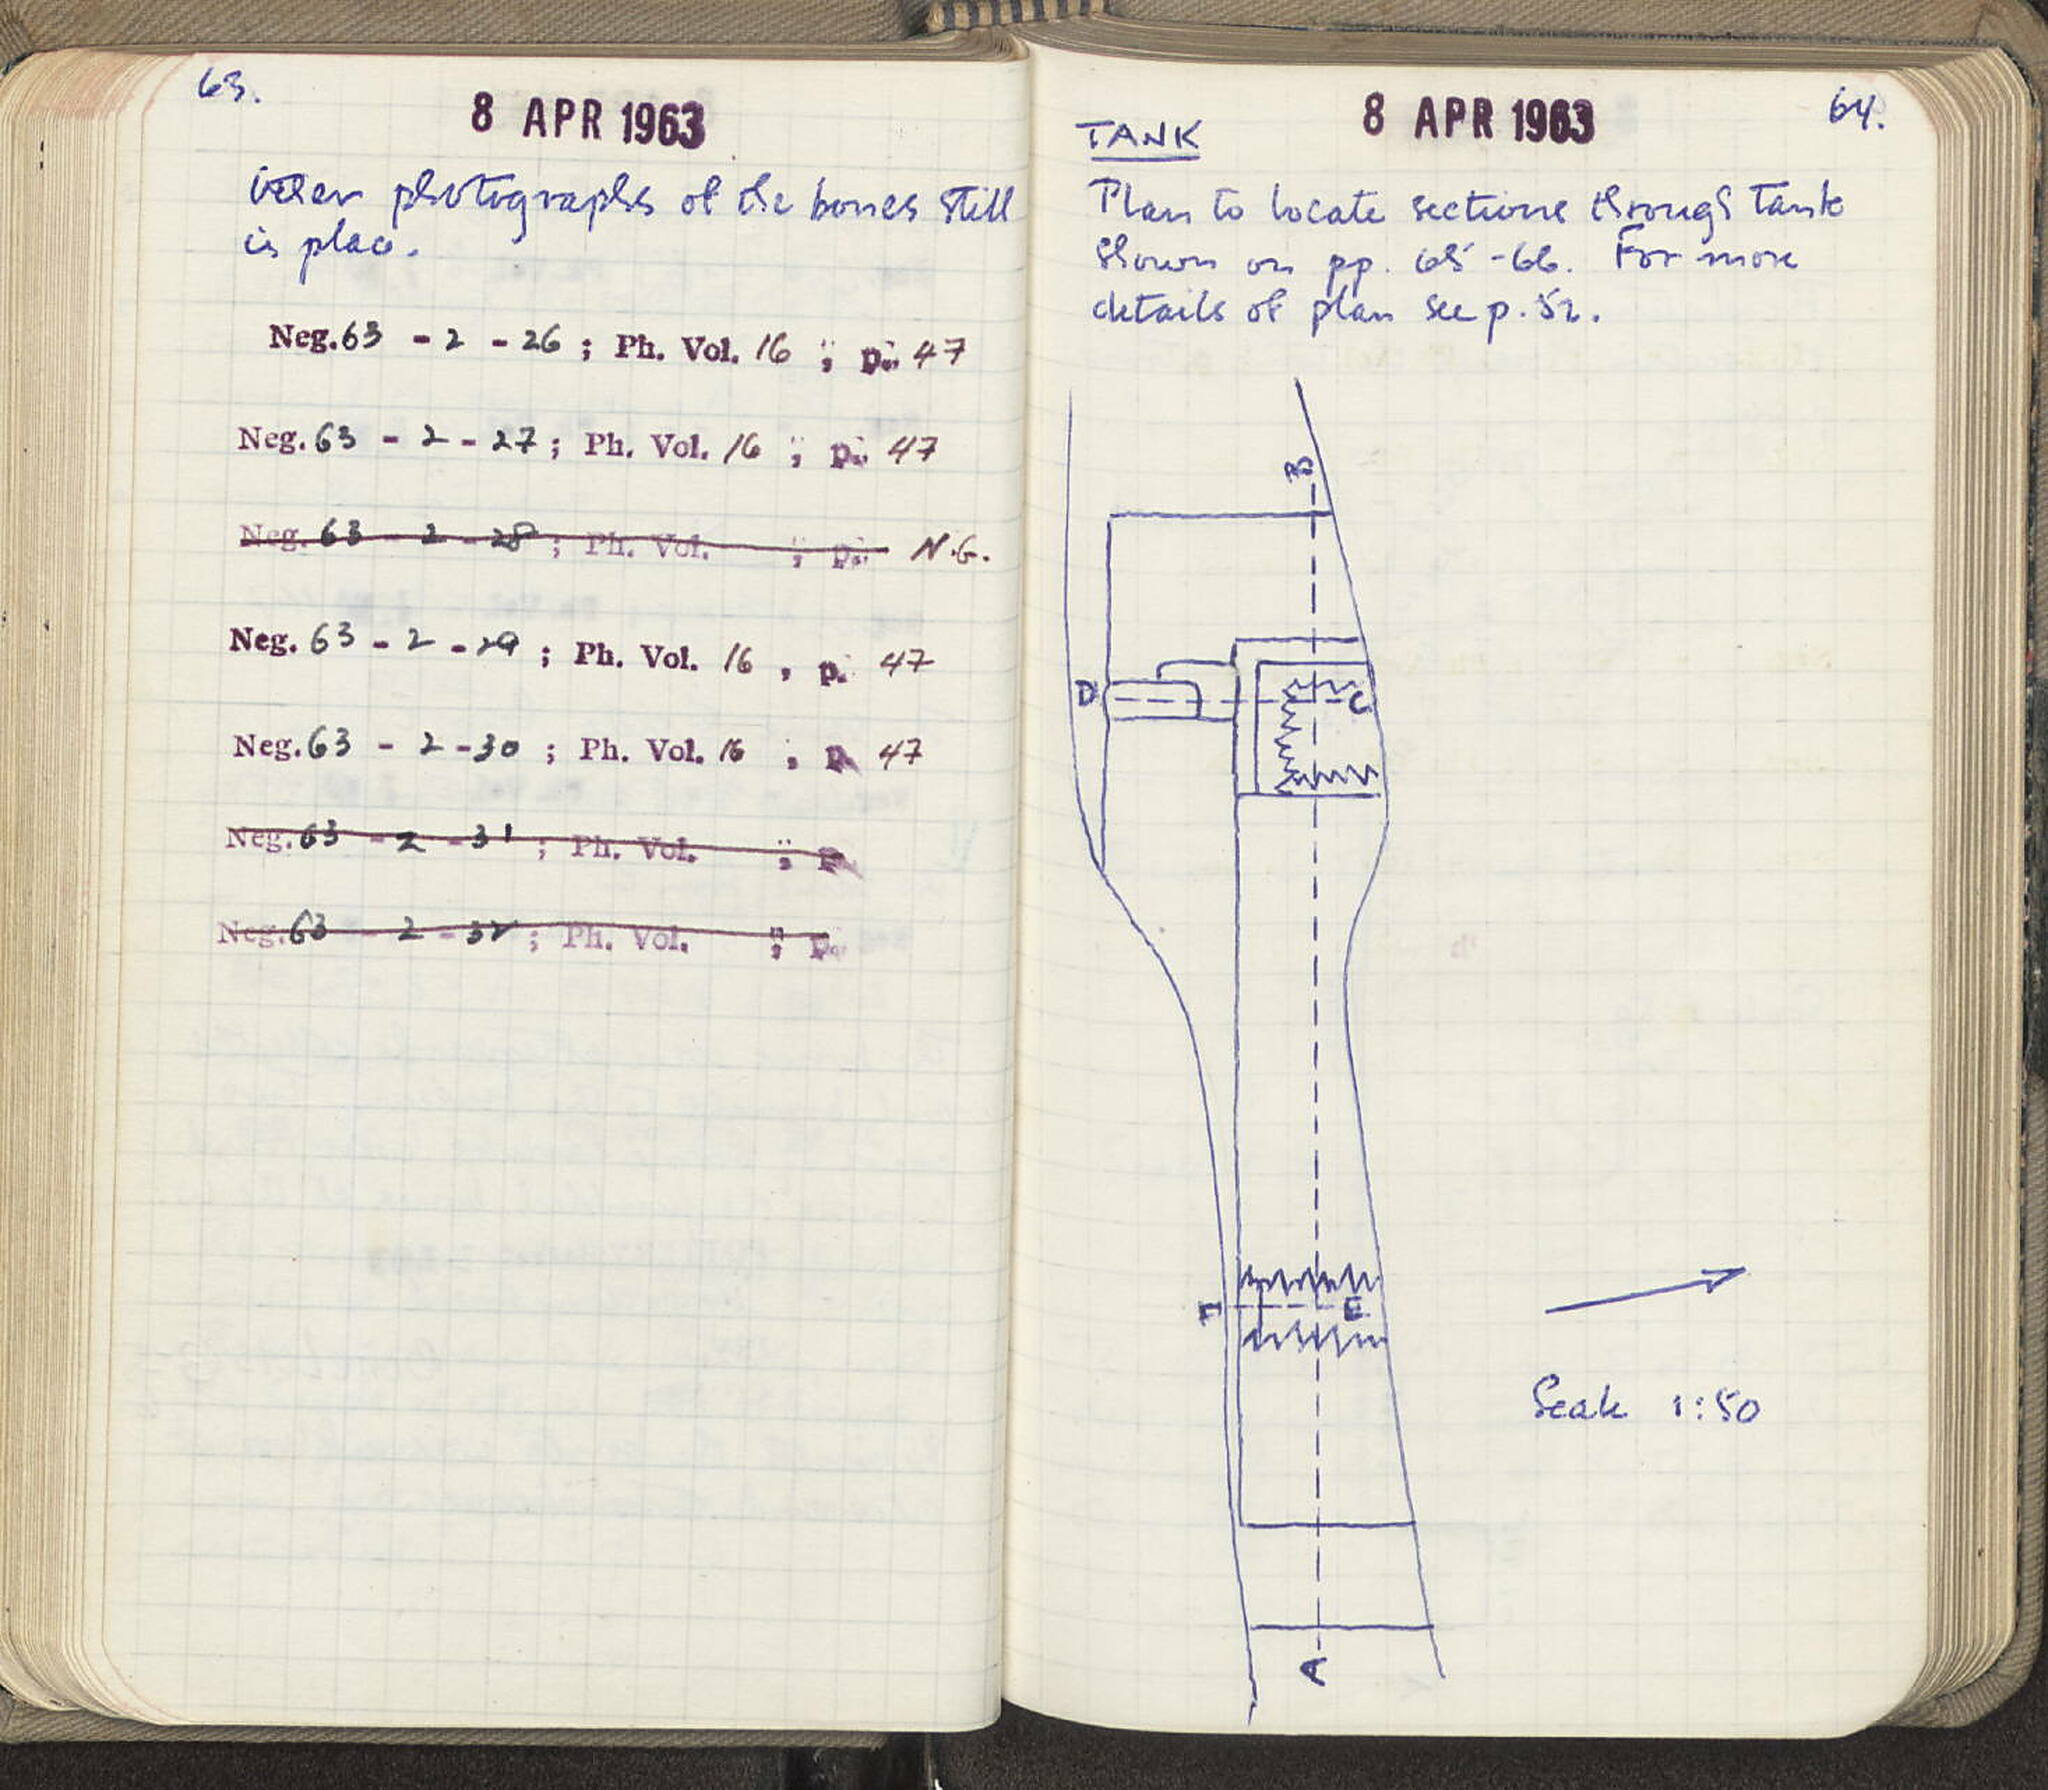 63.
8 APR 1963
photographs of the bones still
in place.
Neg. 63 - 2 - 26 ; Ph. Vol. 16 ; p. 47
Neg. 63 - 2 - 27 ; Ph. Vol. 16 ; p. 47
Neg. 63 - 2 - 28 ; Ph. Vol. ; p. N.G.
Neg. 63 - 2 - 29 ; Ph. Vol. 16 , p. 47
Neg. 63 - 2 - 30 ; Ph. Vol. 16 , p. 47
Neg. 63 - 2 - 31 ; Ph. Vol. ; p.
Neg. 63 - 2 - 32 ; Ph. Vol. ; p.
64.
8 APR 1963
TANK
Plan to locate sections through Tank
shown on pp. 65-66. For more
details of plan see p. 52.
B
D
C
E
Scale 1:50
A